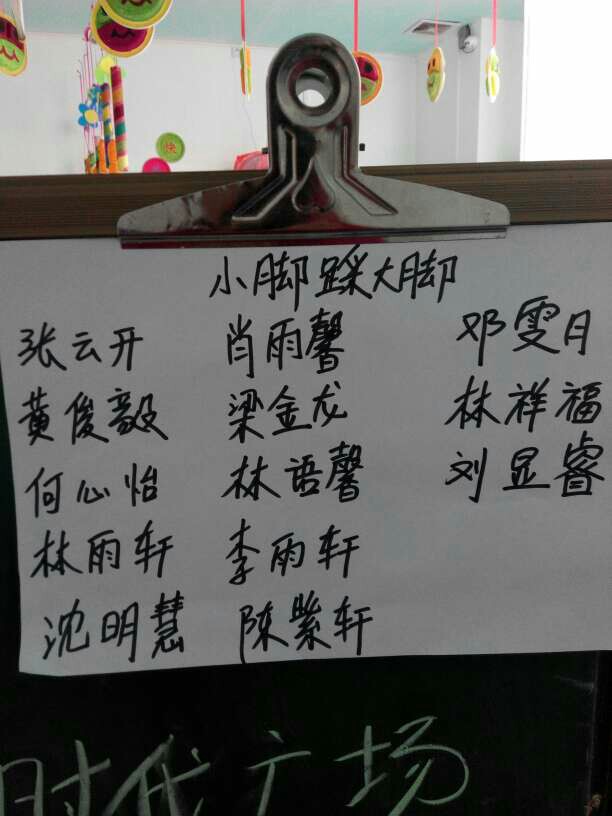 快
小脚踩大脚
张云开 肖雨馨 邓雯月
黄俊毅 梁金龙 林祥福
何心怡 林语馨 刘显睿
林雨轩 李雨轩
沈明慧 陈紫轩
时代广场